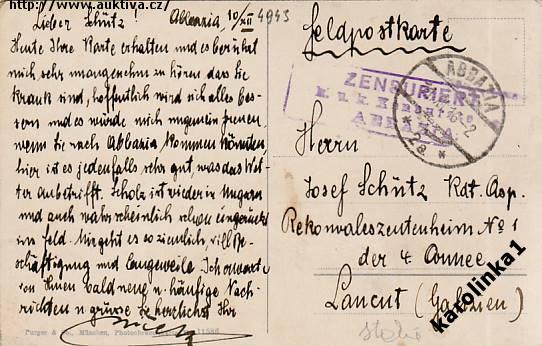 www.auktiva.cz/
Lieber Schütz! Abbazia 10/XII
4943
Heute Ihre Karte erhalten und es berührt
mich sehr unangenehm zu hören dass Sie
krank sind, hoffentlich wird sich alles bes-
sern und es würde mich ungemein freuen,
wenn Sie nach Abbazia kommen könnten,
hier ist es jedenfalls sehr gut, was das Wet-
ter anbetrifft. Scholz ist wieder in Ungarn
und auch wahrscheinlich schon eingerückt
ins Feld. Mir geht es so ziemlich, viel Be-
schäftigung und Langeweile. Ich erwarte
von Ihnen bald neue u häufige Nach-
richten u grüsse Sie herzlichst Ihr
Purger & Co., München, Photochromie 11586
Feldpostkarte
ZENSURIERT
K.u.K.
ABBAZIA
ABBAZIA
Herrn
Josef Schütz Kdt. Asp.
Rekonvaleszentenheim No 1
der 4. Armee
Lancut (Galizien)
karolinka1